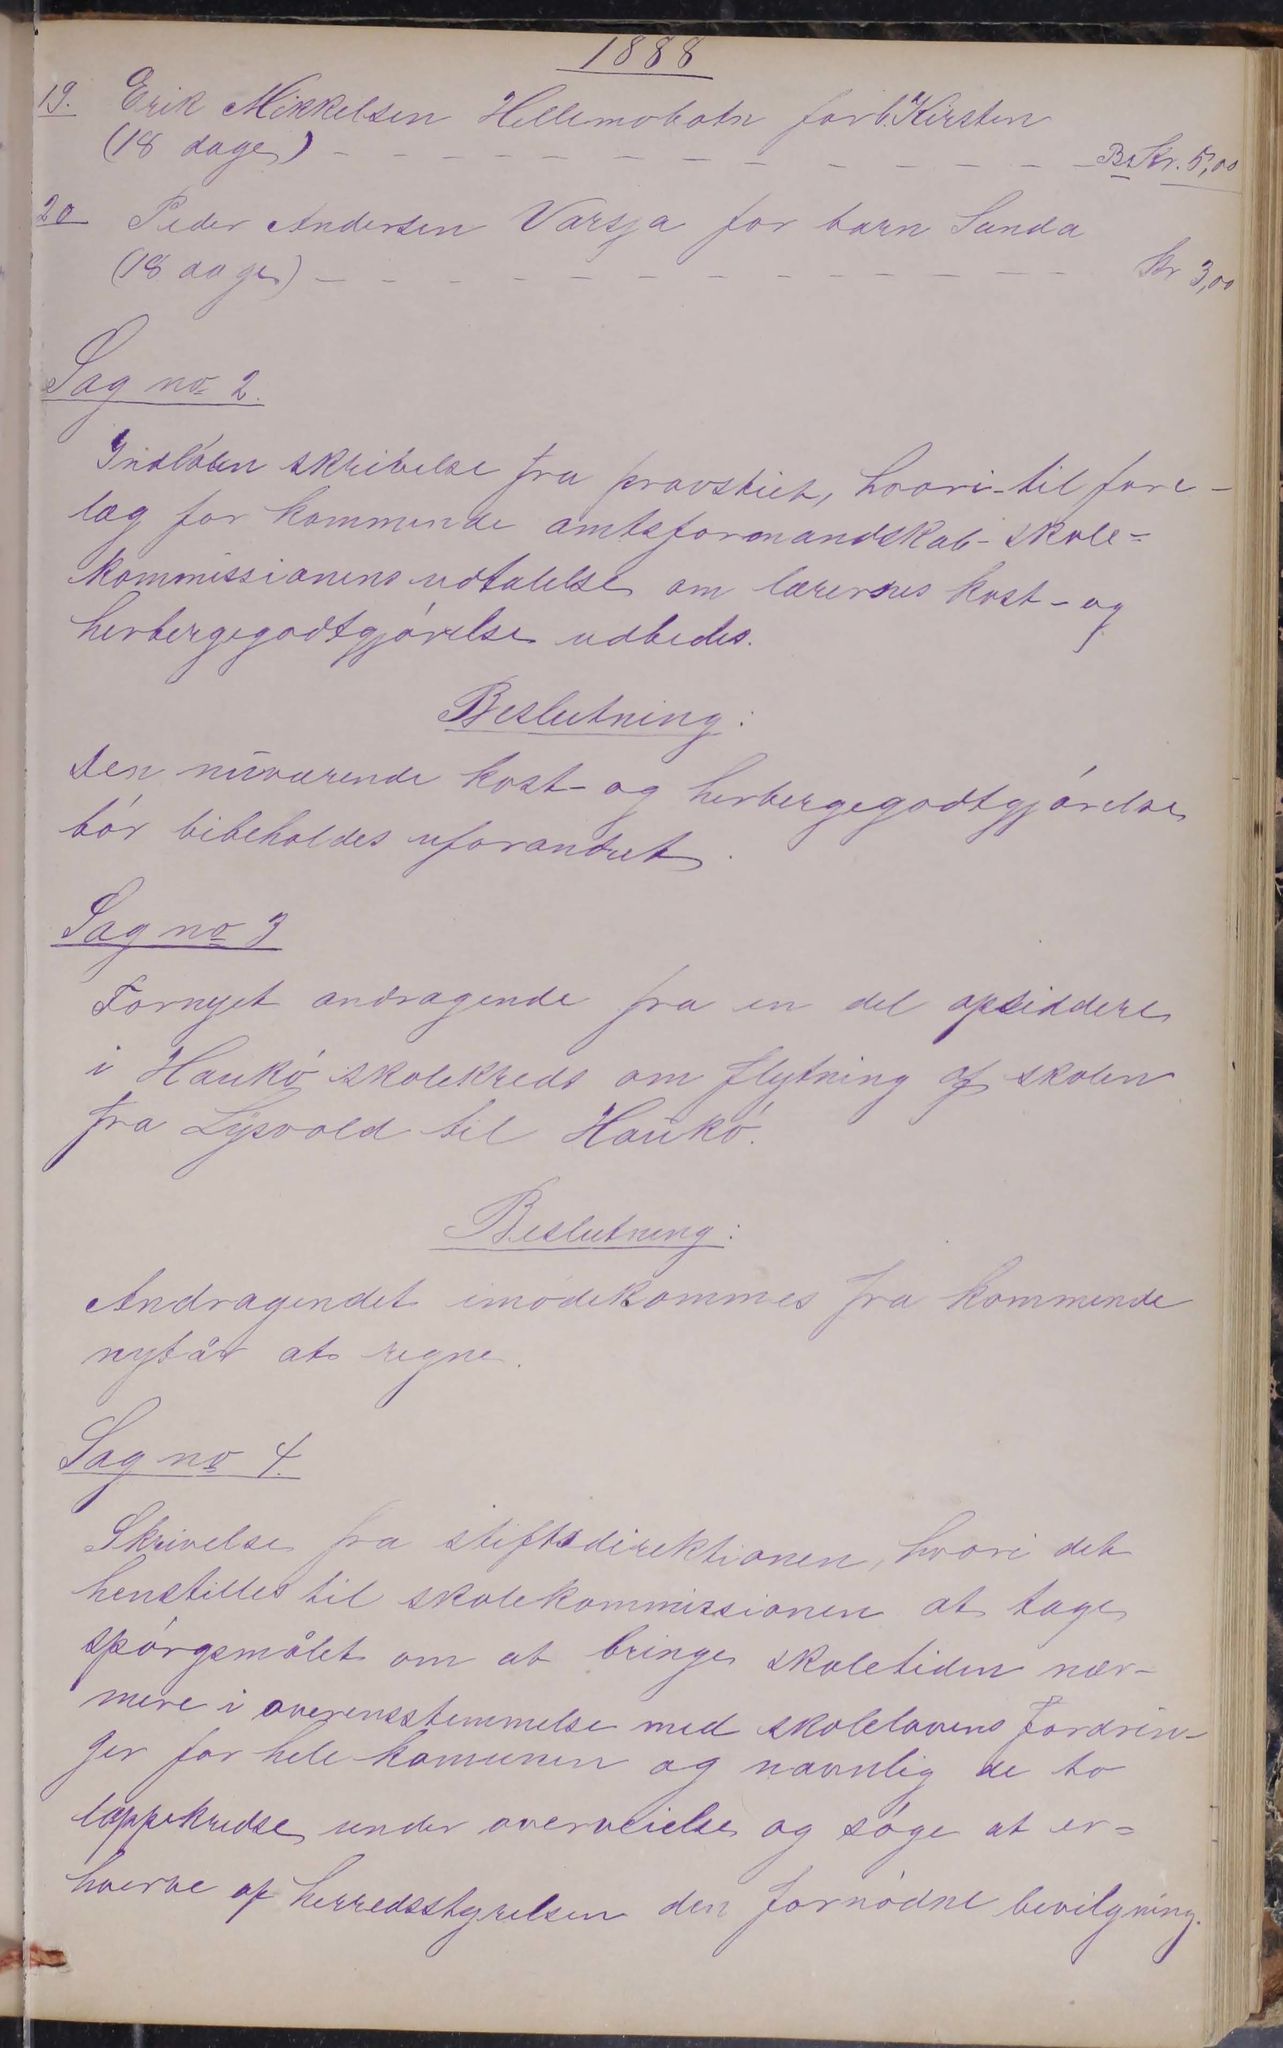 1888
19. Erik Mikkelsen Hellemobotn for b. Kirsten
(18 dage) - - - - - - - - - - - - Kr. 5,00
20 Peder Andersen Varsja for barn Sanda
(18 dage) - - - - - - - - - - - - Kr 3,00
Sag no 2.
Indløben skrivelse fra provstiet, hvori til fore-
læg for kommende amtsformandskab skole-
kommissionens udtalelse om lærernes kost- og
herbergegodtgjørelse udbedes.
Beslutning:
Den nuværende kost- og herbergegodtgjørelse
bør bibeholdes uforandret.
Sag no 3
Fornyet andragende fra en del opsiddere
i Haukø skolekreds om flytning af skolen
fra Lysvold til Haukø.
Beslutning:
Andragendet imødekommes fra kommende
nytår at regne.
Sag no 4.
Skrivelse fra stiftsdirektionen, hvori det
henstilles til skolekommissionen at tage
spørgsmålet om at bringe skoletiden nær-
mere i overensstemmelse med skolelovens fordrin-
ger for hele komunen og navnlig de to
lappekredse under overveielse og søge at er=
hverve af herredsstyrelsen den fornødne bevilgning.